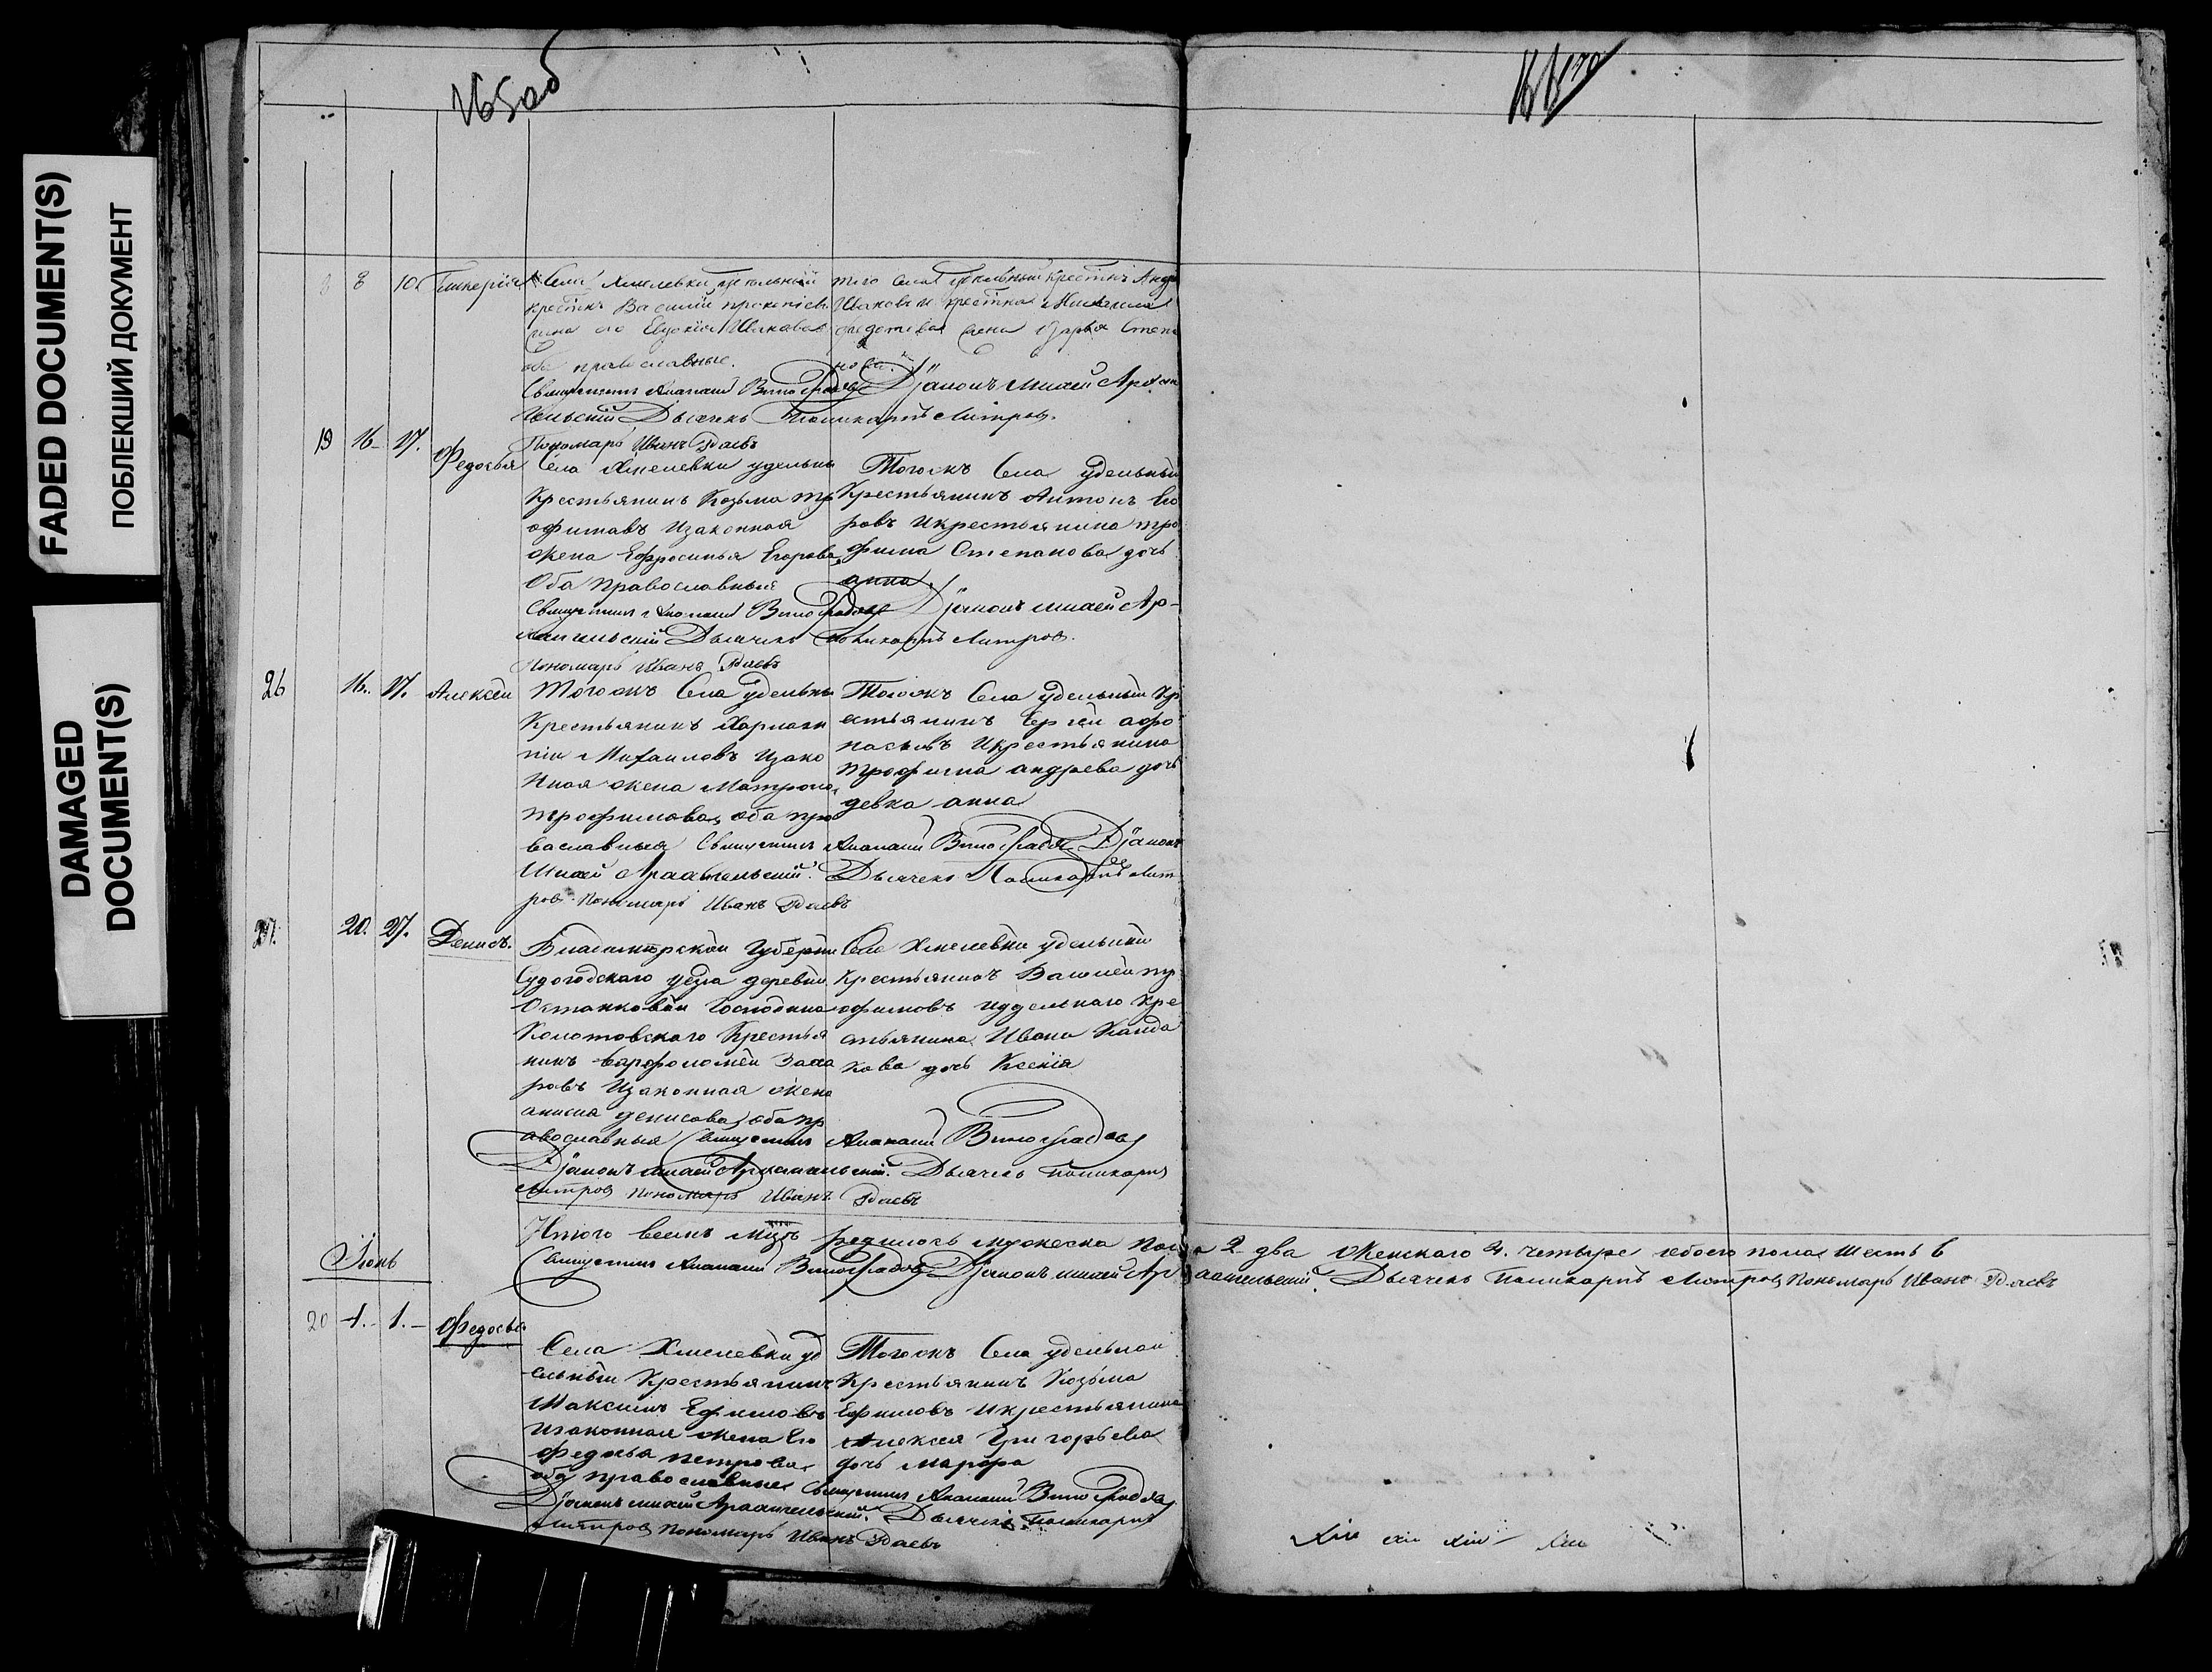 FADED DOCUMENT(S)
ПОБЛЕКШИЙ ДОКУМЕНТ
DAMAGED
DOCUMENT(S)
165 об
170
8 10. Гликерия Села Хмелевки удельный
крестнъ Василій прокопіевъ
жена его Евдокія Иванова
оба православные.
того села удельный крестнъ Андр
Ивановъ и крестна Михаила
Федотова жена Дарья Степа
нова.
Священникъ Ананій Виноградовъ Діаконъ Михаилъ Архан
гельскій Дьячекъ Поликарпъ Митровъ.
Пономарь Иванъ Раевъ
19 16. 17. Федосья
Села Хмелевки удельны
Крестьянинъ Козьма тр
офимавъ Изаконная
жена Ефросинья Егорова
Оба православныя
Тогожъ Села удельный
Крестьянинъ Антонъ Его
ровъ Икрестьянина тро
фима Степанова дочь
анна.
Священникъ Ананій Виноградовъ Діаконъ Михаилъ Ар-
хангельскій Дьячекъ Поликарпъ Митровъ.
Пономарь Иванъ Раевъ
26 16. 17. Алексей
Тогожъ Села удельны
Крестьянинъ Харлам
пій Михаиловъ Изако
нная жена Матрона
трофимова, оба пра
вославныя
Тогожъ Села удельный кр
естьянинъ Сергей афо
насьевъ Икрестьянина
трофима андрева дочь
девка анна
Священникъ Ананій Виноградовъ Діаконъ
Михаилъ Архангельскій. Дьячекъ Поликарпъ Мит
ровъ Пономарь Иванъ Раевъ
27. 20. 27. Денисъ.
Владимирской Губерни
Судогодского уезда деревни
Остапковой Господина
Колотовского Крестья
нинъ варфоломей Заха
ровъ Изаконная жена
анисия денисова, оба пр
авославныя
Села Хмелевки удельный
Крестьянинъ Василей тр
офимовъ иудельнаго кре
стьянина Ивана Канда
кова дочь Ксенія
Священникъ Ананій Виноградовъ
Діаконъ Михаилъ Архангельскій. Дьячекъ Поликарпъ
Митровъ Пономарь Иванъ Раевъ
Итого всемъ родилось мужеска пола 2 два женскаго 4. четыре обоего пола шесть 6
Священникъ Ананій Виноградовъ Діаконъ Михаилъ Архангельскій. Дьячекъ Поликарпъ Митровъ Пономарь Иванъ Раевъ
Іюнь
20 1. 1. Федосья
Села Хмелевки уд
ельный Крестьянинъ
Максимъ Ефимовъ
Изаконная жена Его
Федосья петрова
оба православные
Тогожъ Села удельнаи
Крестьянинъ Козьма
Ефимовъ Икрестьянина
Алексея Григорьева
дочь Марфа
Священникъ Ананій Виноградовъ
Діаконъ Михаилъ Архангельскій. Дьячекъ Поликарпъ
Митровъ Пономарь Иванъ Раевъ